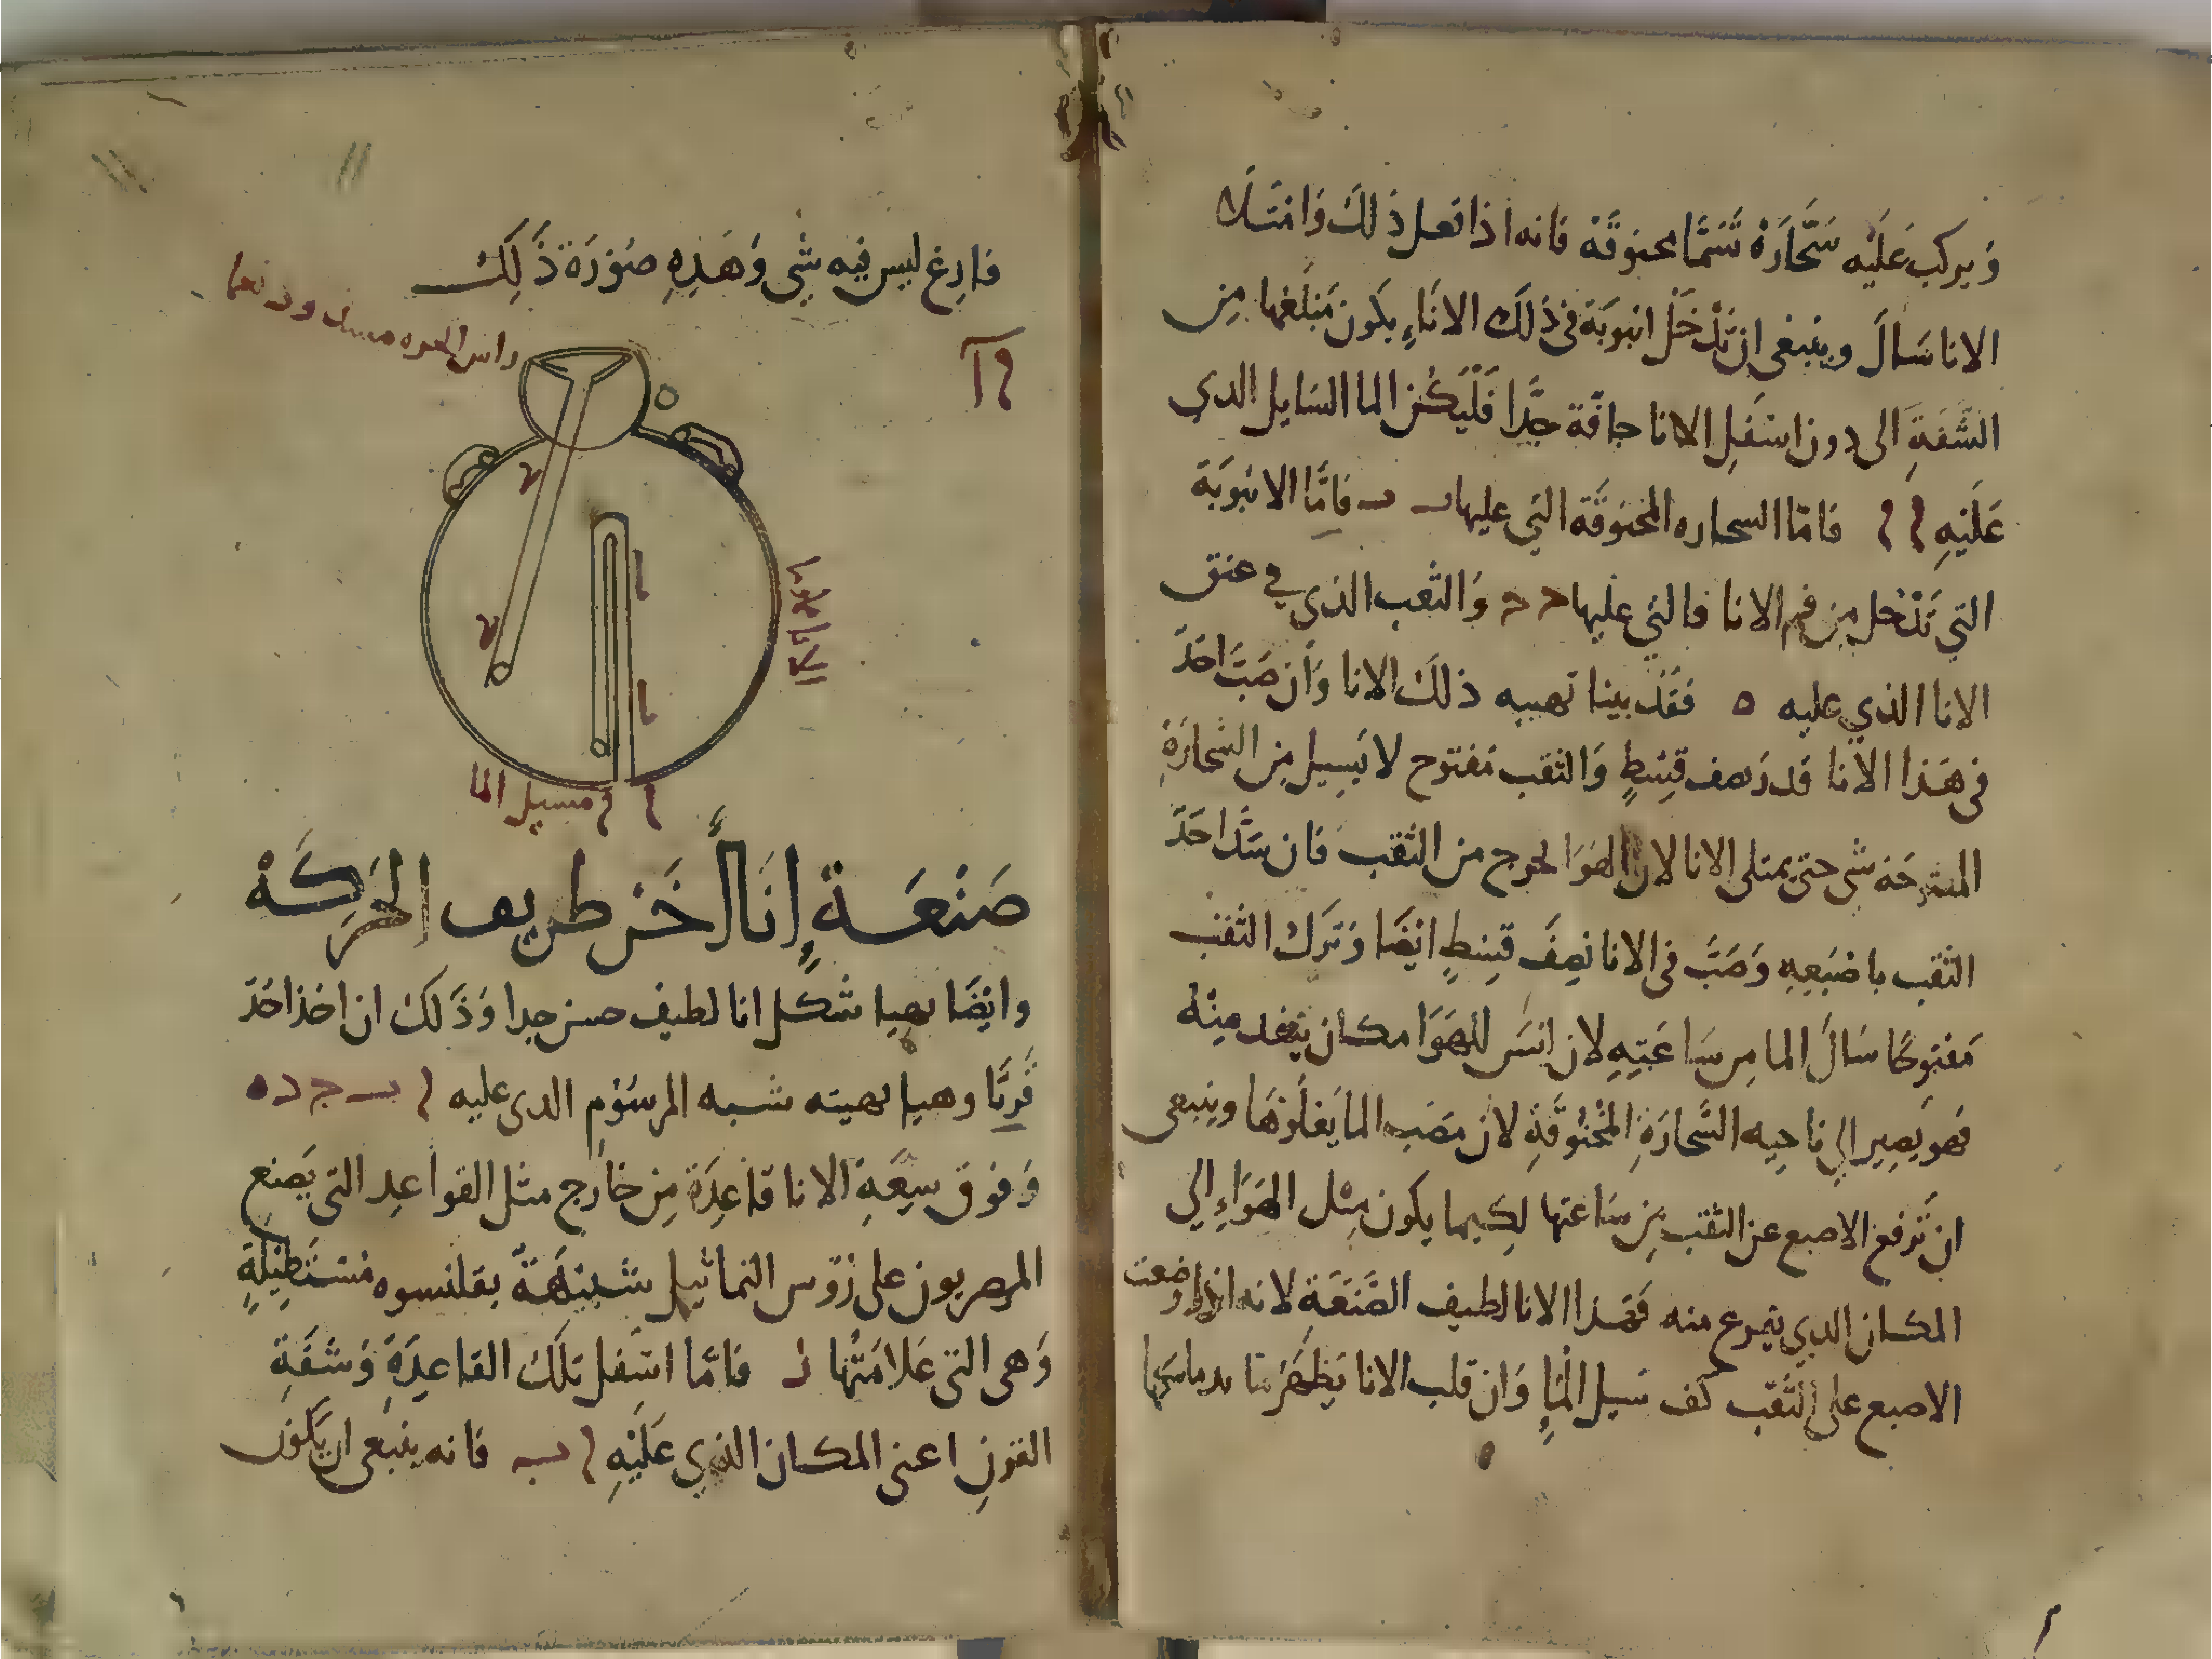 وَيركب عَلَيْه سَحَّارَة تُسَمَّا مخنوقَة فانه اذا فعل ذلك وَامتَلا
الانا سَالَ وينبغى ان تُدْخَل انبوبَة فى ذلَك الاناءِ يكون مَبلَغها مِن
الشَفَةِ الى دون اسْفَلِ الانا جافّة جِدًّا فَلْيَكُن الما السَايل الدي
عَلَيْهِ ا ا فامّا السحاره المخنوقَة التي عليها ب ب فامَّا الانبوبَة
التي تَدْخل مِن فم الانا فالتي عليها د د وَالثقب الذي في عنق
الانا الذي عليه ه فَقَد بينا تهييه ذلكَ الانا وَان صَبَّ احَدٌ
فى هَذا الانا قدر نصف قِسْطٍ وَالثقب مَفتوح لا يَسِيل مِن السَّحارَةِ
شى حتى يمتلى الانا لان الهَوَا لخروج من الثقب فان سَدَّ احَدٌ
الثقب باصْبَعِهِ وَصَبَّ فى الانا نِصِفَ قِسْطٍ ايضَا وَتَرَك الثقب
مَفتوحًا سَالَ الما مِن سَاعَتِهِ لان ليسَ للهَوَا مكان ينفد منِهُ
فهو يَصِير الي ناحِيه السَّحارَةِ المخْنُوقَةِ لان مَصَب الما يَعلوهَا وينبعى
ان تَرفع الاصبع عن الثقب مِن سَاعَتها لِكيما يكون مِثل الهَوَاءِ الي
المكان الدي يتفرع منه فَهَذا الانا لطيف الصَّنعَةِ لانه اذا وضعت
الاصبع على الثّقب كَف سَيل المْاءِ وَان قلب الانا يَظهَر
فارغ ليس فيه شي وَهَذِهِ صُورَة ذَلِكَ
راس الجره
الانا
مسيل الما
صَنْعَةِ إنَاءٍ أخَر طريف الحَرَكَة
وايضًا يهيا شكل انا لطيف حسن جدا وَذَلكَ ان اخذ احَدٌ
قَرنًا وهيا بهيئه شبه المرسُوم الدى عليه ا ب ج د ه
وَفوق سِعَةِ الانا قاعِدَة مِن خارج مثل القواعِد التى يَصنع
المصريون على رُؤس التماثيل شَبِيهَةً بقلنسوه مُسْتَطِيْلَةٍ
وَهى التى عَلامَتُها ز فامّا اسفل تلكَ القاعِدَةِ وَشَفَةِ
القرْنِ اعنى المكان الذي عَلَيْهِ ا ب فانه ينبعى ان يَكُون